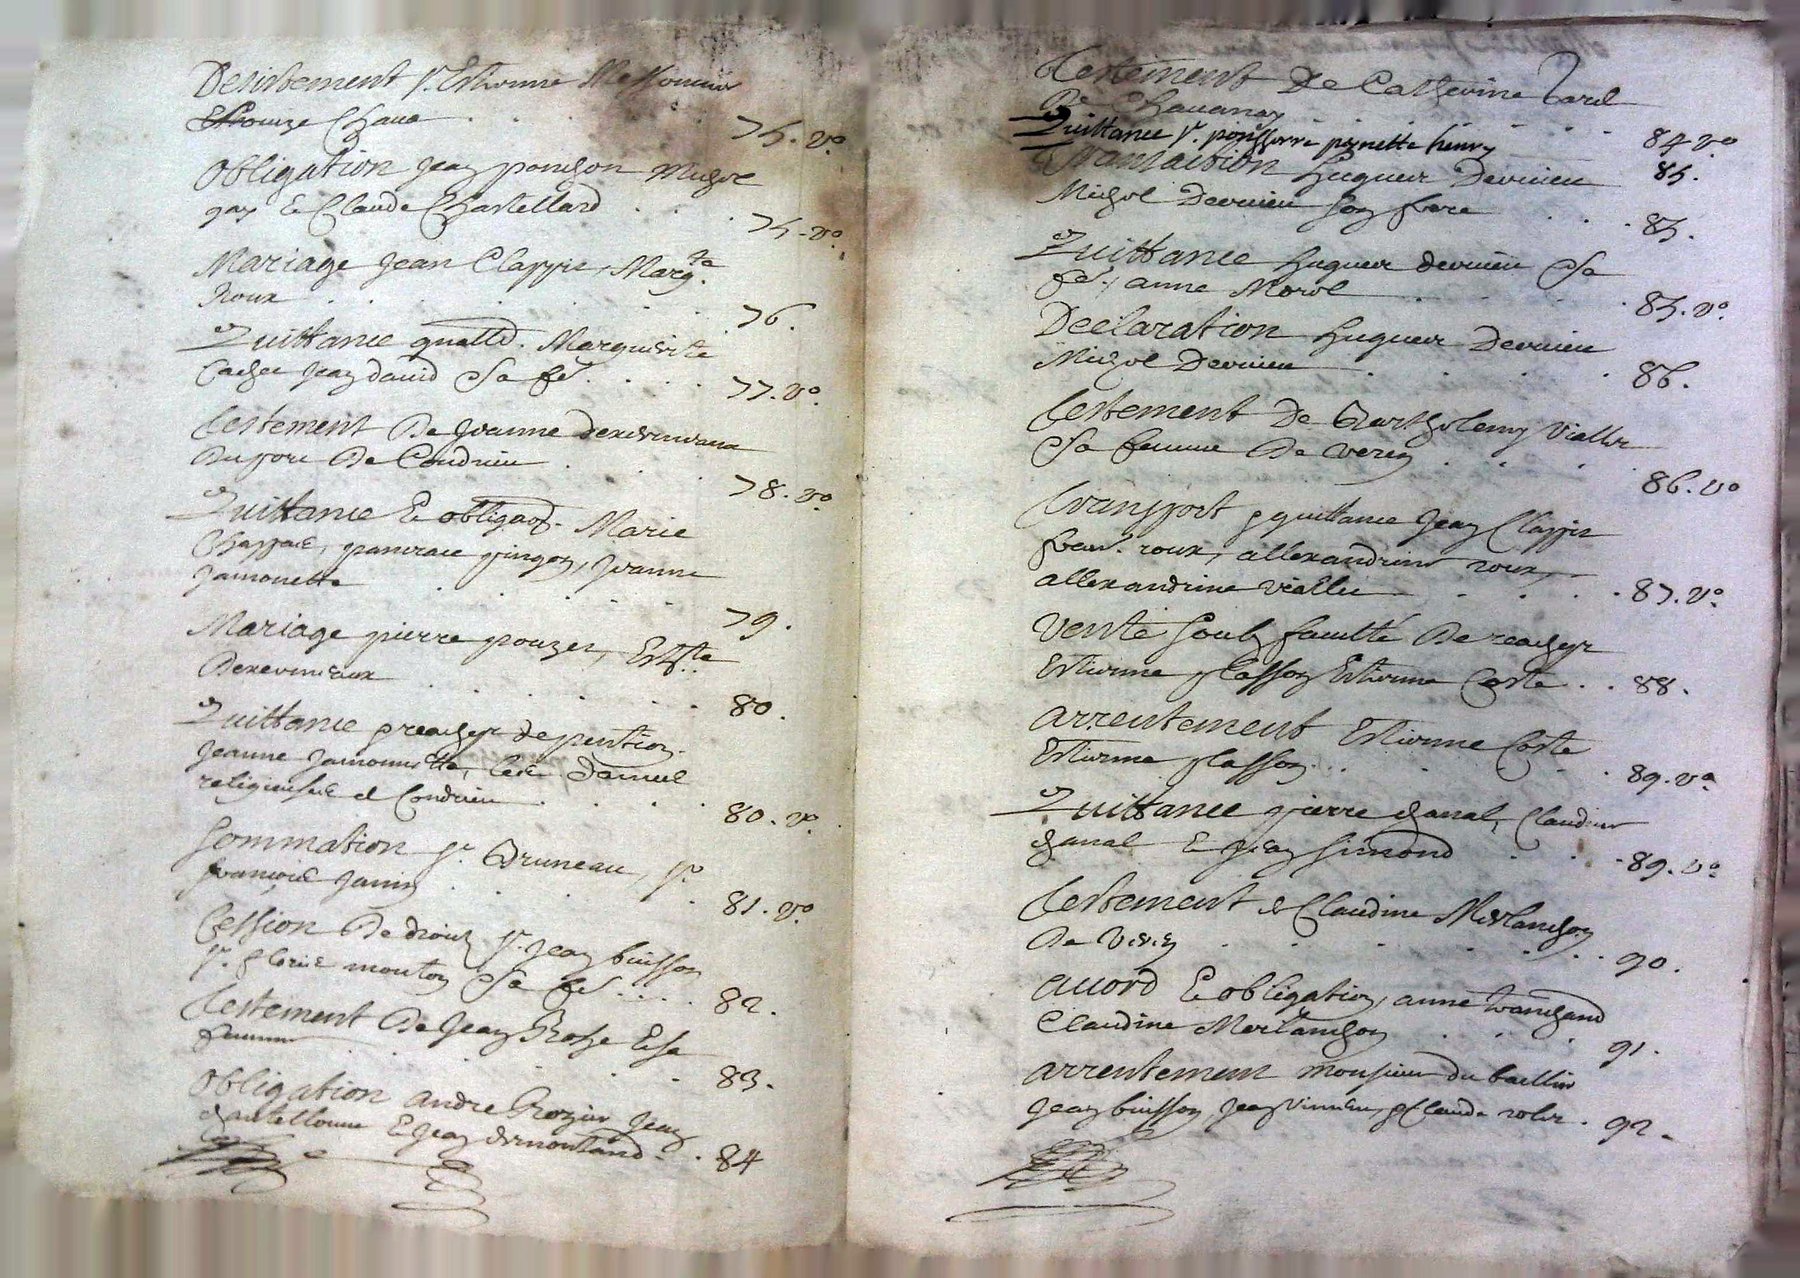 Desistement Sr. Estienne Messonnier
Chaue
75. vo.
Obligation Jean ponchon Michel
gay & Claude Chastellard
75. vo.
Mariage Jean Clappis, Margte.
Roux
76.
Quittance quatted. Marguerite
Jean david & Sa fe.
77. vo.
Testement De Jeanne derevineaux
Du port De Condrieu
78. vo
Quittance & obligaon. Marie
pancrace pingon, Jeanne
Jamonette
79.
Mariage pierre pouzet, Estte
Derevineux
80.
Quittance & reachept de pention.
Jeanne Jamonette, les Dames
religieuses de Condrieu
80. vo.
Sommation Sr. Bruneau, Sr.
françois Janin
81. vo
Cession De droits Sr. Jean buisson
Sr. mouton & Sa fe.
82.
Testement De Jean Roche & Sa
femme
83.
Obligation andré Rozier Jean
& Jean
84
Testement De Catherine
De Chauanay
84 vo
Quittance Sr. pierre pernette henry
85.
Transaction hugues Dervieu
Michel Dervieu son frere
85.
Quittance hugues dervieu & Sa
fe., anne Morel
85. vo.
Declaration hugues Dervieu
Michel Dervieu
86.
Testement De Bartholemy Viallet
& Sa femme De verin
86. vo
Transport & quittance Jean Clappis
roux, allexandrine roux,
allexandrine viallet
87. vo.
Vente Soubz faculté De reachept
Estienne plasson Estienne Coste
88.
Arrentement Estienne Coste
Estienne plasson
89. vo
Quittance pierre chanal, Claudine
chanal & Jean Simond
89. vo
Testement de Claudine Merlanchon
De Verin
90.
Acord & obligation, anne tranchand
Claudine Merlanchon
91.
Arrentement monsieur du baillier
Jean buisson Jean & Claude
92.